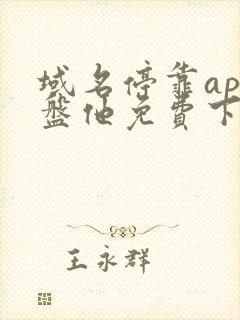 域名停靠ap
盤他免費下
王永群